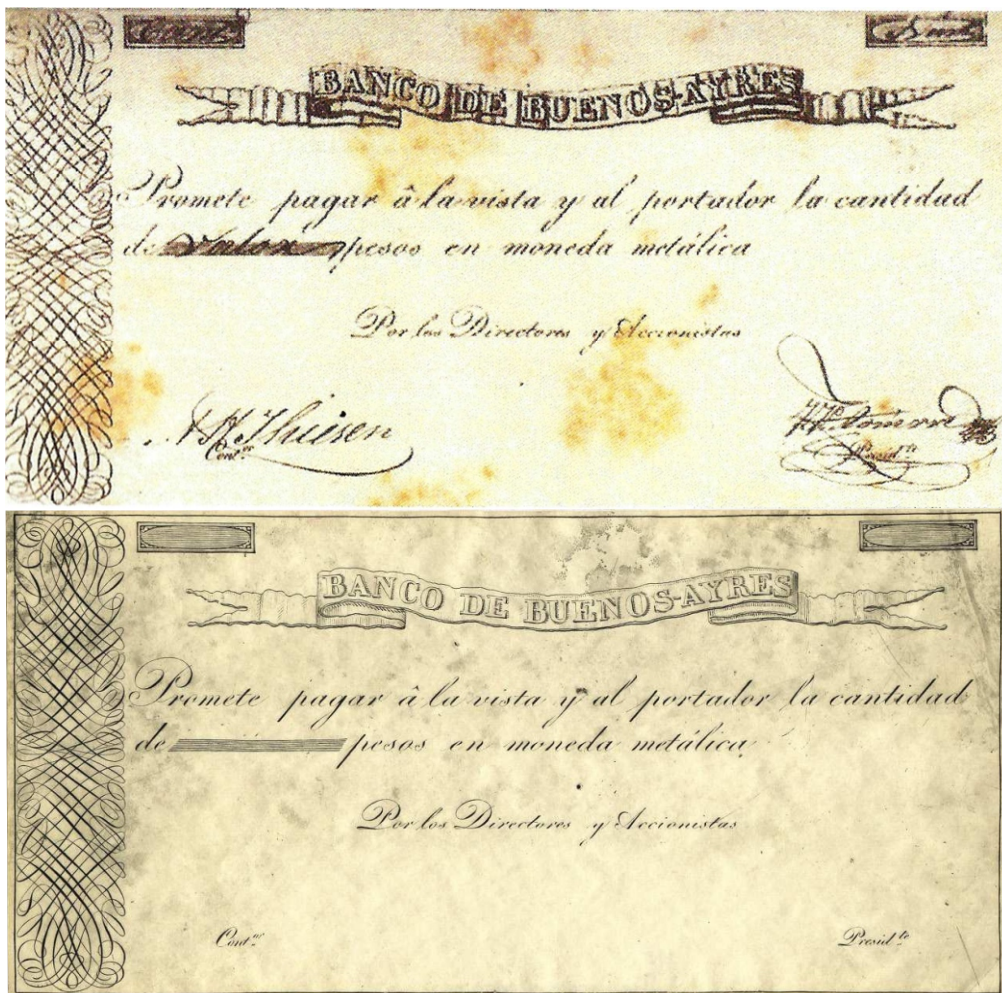 BANCO DE BUENOS-AYRES
Promete pagar â la vista y al portador la cantidad
de Valor pesos en moneda metálica
Por los Directores y Accionistas
Thiisen
Cont.or
Presid.te
BANCO DE BUENOS-AYRES
Promete pagar â la vista y al portador la cantidad
de pesos en moneda metálica
Por los Directores y Accionistas
Cont.or Presid.te